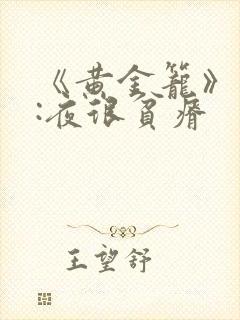 《黄金籠》
:夜很貧瘠
王望舒